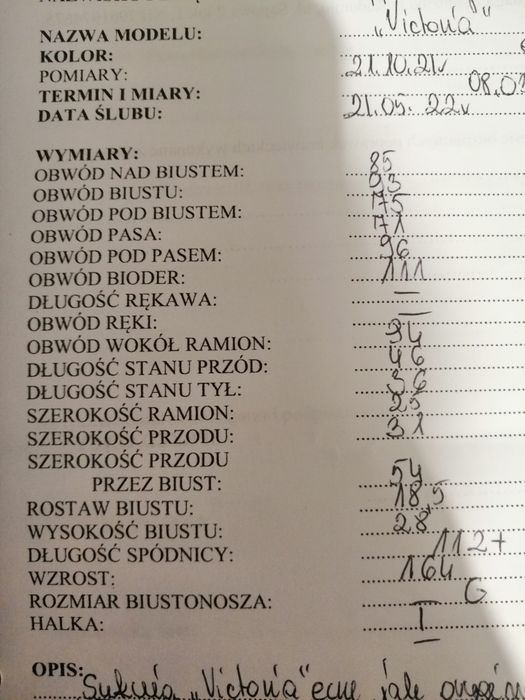 NAZWA MODELU: "Victoria"
KOLOR:
POMIARY: 21.10.21r
TERMIN I MIARY: 08.0
DATA ŚLUBU: 21.05.22r
WYMIARY:
OBWÓD NAD BIUSTEM: 85
OBWÓD BIUSTU: 93
OBWÓD POD BIUSTEM: 75
OBWÓD PASA: 71
OBWÓD POD PASEM: 96
OBWÓD BIODER: 111
DŁUGOŚĆ RĘKAWA: —
OBWÓD RĘKI: —
OBWÓD WOKÓŁ RAMION: 94
DŁUGOŚĆ STANU PRZÓD: 46
DŁUGOŚĆ STANU TYŁ: 36
SZEROKOŚĆ RAMION: 25
SZEROKOŚĆ PRZODU: 31
SZEROKOŚĆ PRZODU
PRZEZ BIUST: 54
ROSTAW BIUSTU: 18,5
WYSOKOŚĆ BIUSTU: 28
DŁUGOŚĆ SPÓDNICY: 112+
WZROST: 164
ROZMIAR BIUSTONOSZA: G
HALKA: I
OPIS: Suknia "Victoria" ecru jak